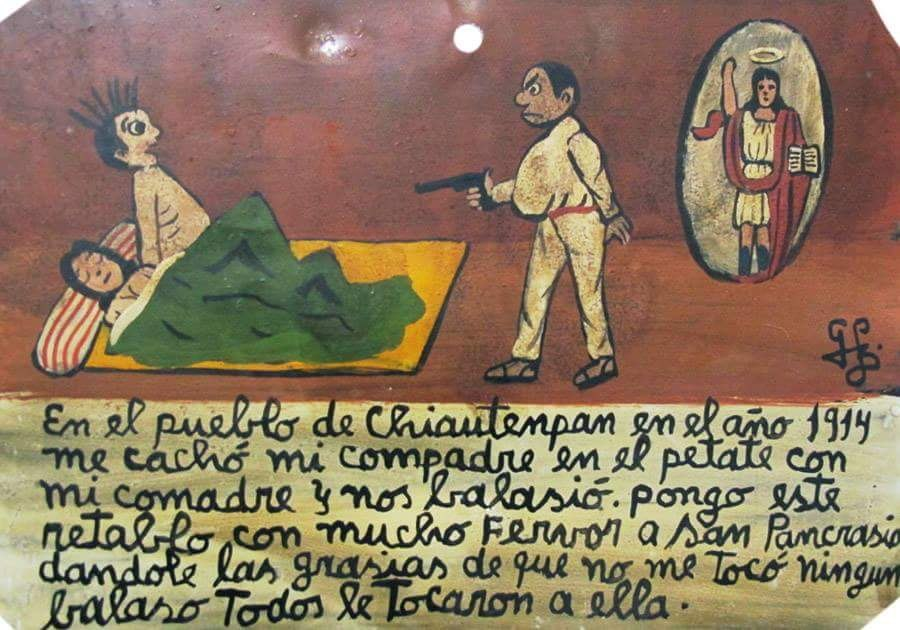 En el pueblo de Chiautenpan en el año 1914
me cachó mi compadre en el petate con
mi comadre y nos balasió. pongo este
retablo con mucho Fervor a San Pancrasio
dandole las grasias de que no me Tocó ningun
balaso Todos le Tocaron a ella.